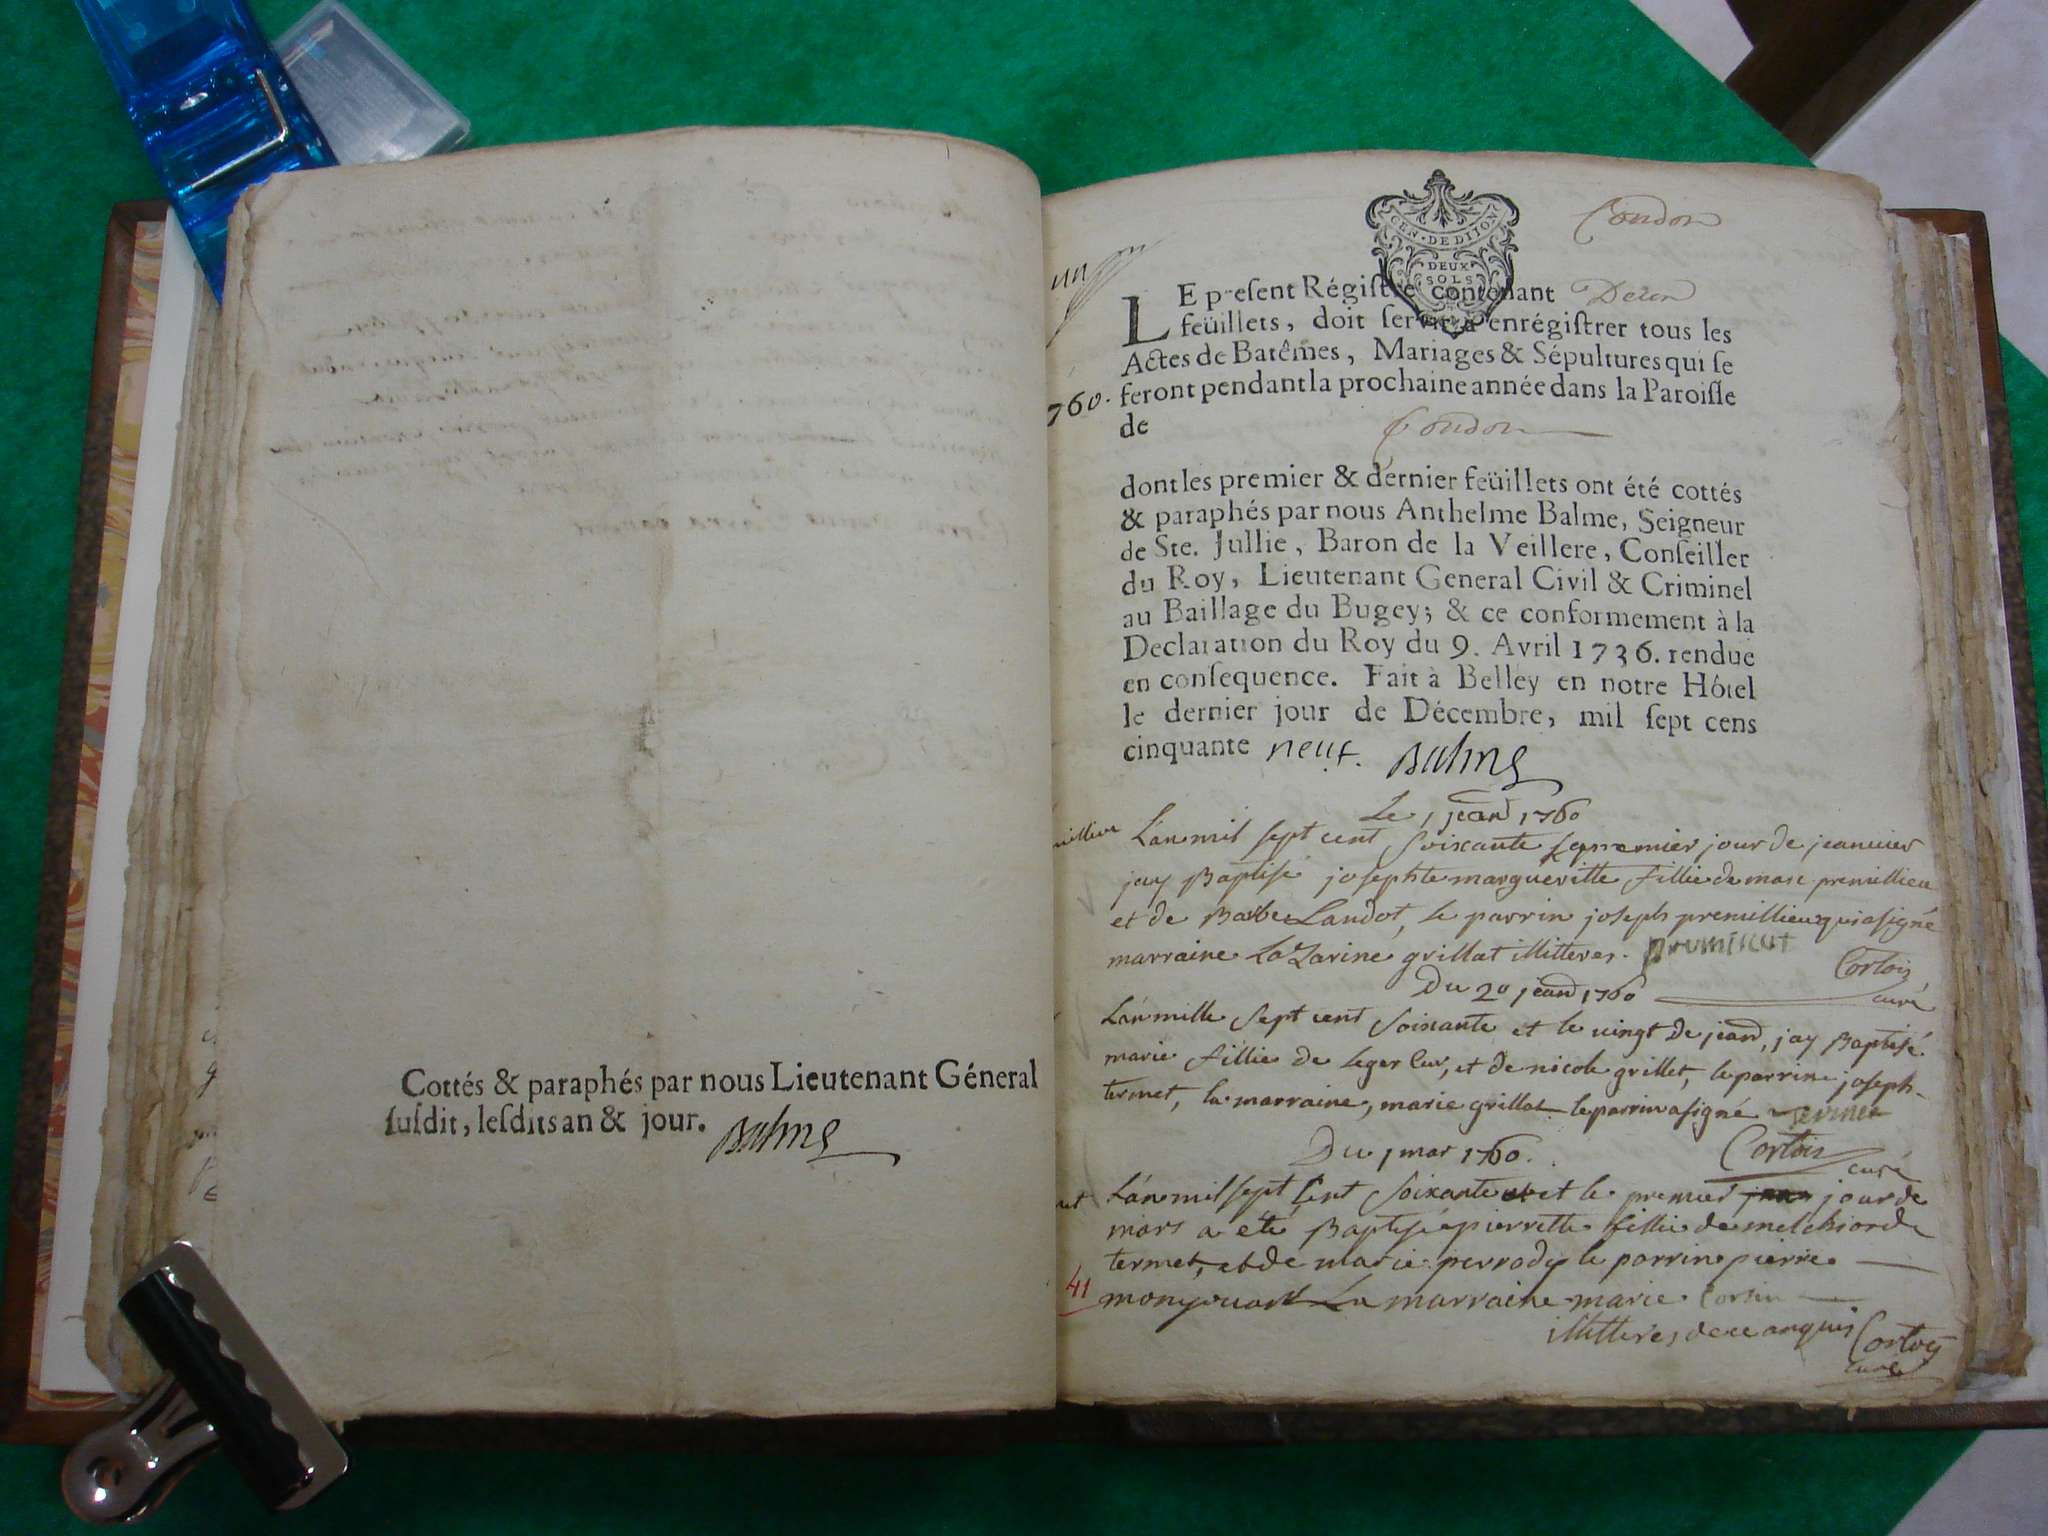 Cottés & paraphés par nous Lieutenant Géneral
susdit, lesdits an & jour. Balme
GEN. DE DIJON
DEUX
SOLS
Condon
LE present Régistre contenant Deux
feüillets, doit servir à enrégistrer tous les
Actes de Batêmes, Mariages & Sépultures qui se
feront pendant la prochaine année dans la Paroisse
760.
de Condon
dont les premier & dernier feüillets ont été cottés
& paraphés par nous Anthelme Balme, Seigneur
de Ste. Jullie, Baron de la Veillere, Conseiller
du Roy, Lieutenant General Civil & Criminel
au Baillage du Bugey; & ce conformement à la
Declaration du Roy du 9. Avril 1736. rendue
en consequence. Fait à Belley en notre Hôtel
le dernier jour de Décembre, mil sept cens
cinquante neuf. Balme
Le 1 jeanr 1760
L'an mil sept cent soixante le premier jour de jeanuier
jay Baptisé josephte margueritte fillie de marc premillieu
et de Barbe Landot, le parrin joseph premillieu qui a signé
marraine Lazarine grillat illitteres. premilieu
Cortois
curé
Du 20 jeanr 1760
L'an mille sept cent soixante et le vingt de jeanr, jay Baptisé
marie fillie de leger cur, et de nicole grillet, le parrin joseph
termet, la marraine, marie grillat le parrin a signé termet
Cortois
curé
Du 1 mar 1760.
L'an mil sept cent soixante et le premier jour de
mars a été Baptisé pierrette fillie de melchior de
termet, et de marie perrody le parrin pierre
41
monjouant La marraine marie Corsin
illitteres de ce anquis Cortois
curé